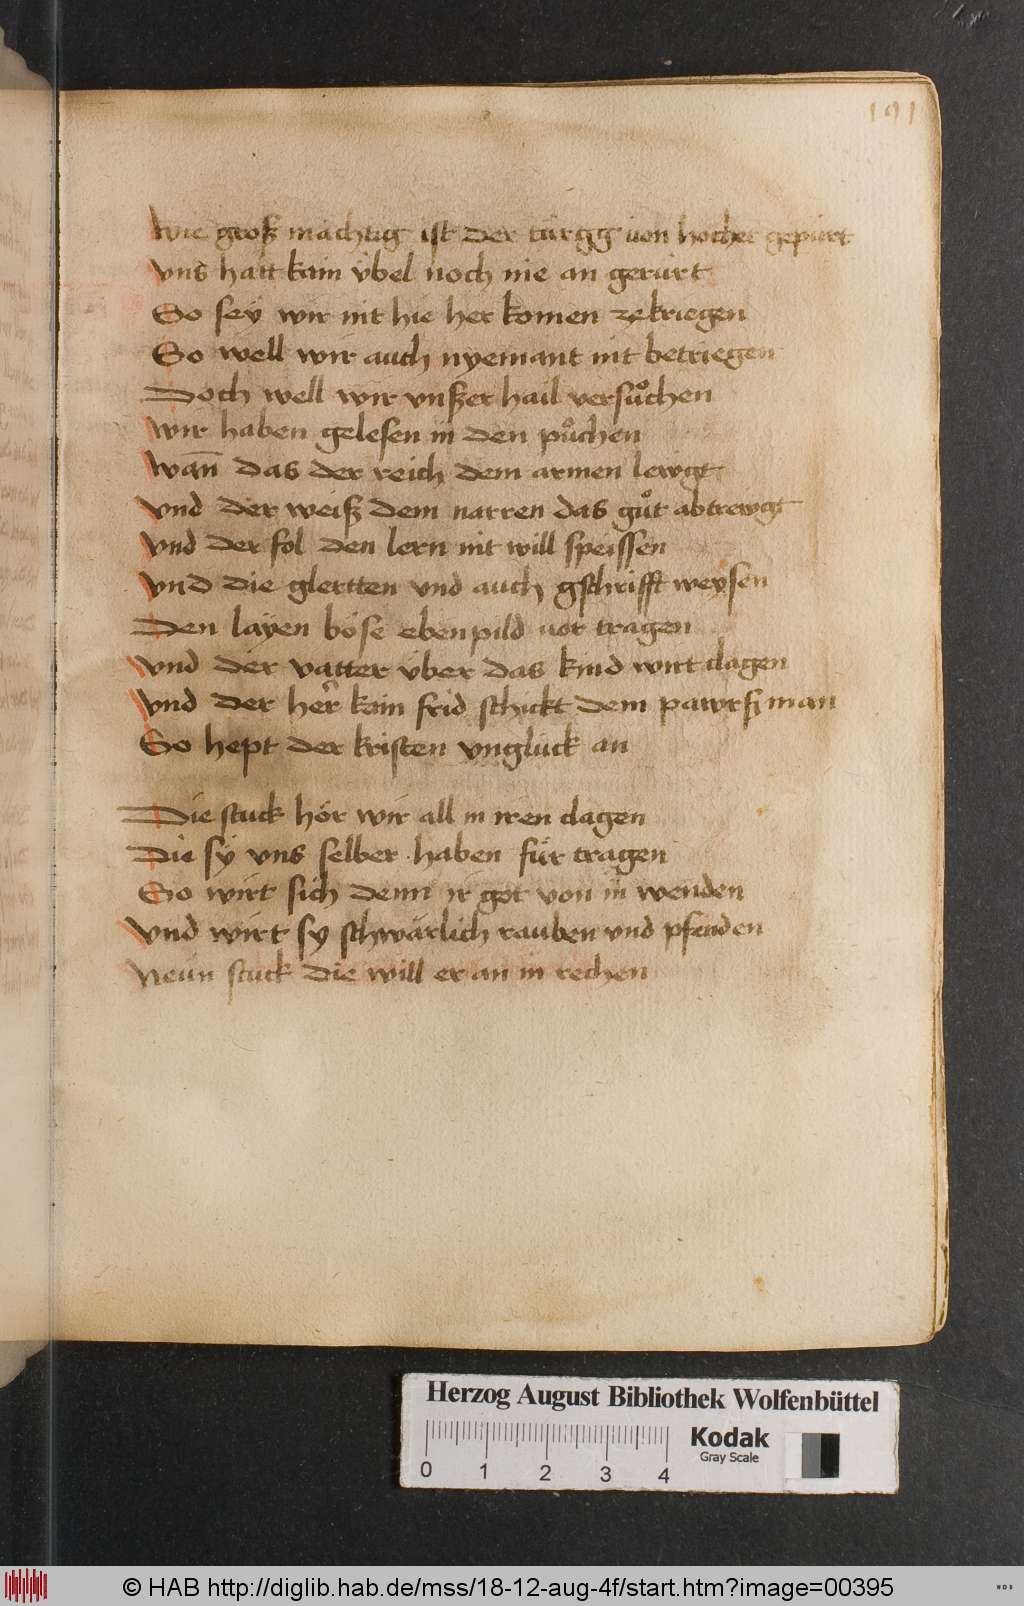 191
wie groß mächtig ist der türgg von hocher gepürt
vns hatt kain übel noch nie an gerürt
So seÿ wir nit hie her komen ze kriegen
So well wir auch nyemant nit betriegen
Doch well wir vnßer hail versůchen
wir haben gelesen in den půchen
wan̄ das der reich dem armen lewgt
vnd der weiß dem narren das gůt abtrewgt
vnd der fol den lern nit will speissen
vnd die glertten vnd auch gschrifft weysen
Den läyen böse ebenpild vor tragen
vnd der vatter über das kind wirt clagen
vnd der her kain frid schickt dem pawrßman
So hept der kristen vnglück an
Die stuck hör wir all in iren clagen
Die sÿ vns selber haben für tragen
So wirt sich denn ir got von in wenden
vnd wirt sy schwärlich rauben vnd pfenden
Neün stuck die will er an in rechen
Herzog August Bibliothek Wolfenbüttel
0 1 2 3 4
Kodak
Gray Scale
© HAB http://diglib.hab.de/mss/18-12-aug-4f/start.htm?image=00395